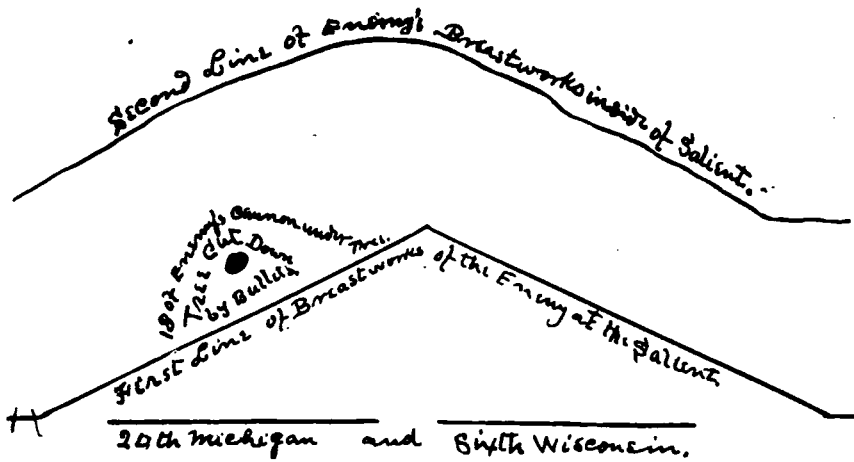 Second Line of Enemy's Breastworks inside of Salient.
18 of Enemy's Cannon under Tree.
Tree Cut Down
by Bullets
First Line of Breastworks of the Enemy at the Salient
24th Michigan and Sixth Wisconsin.